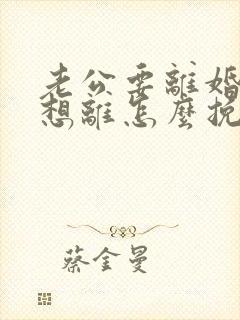 老公要離婚
想離怎麼挽
蔡金曼